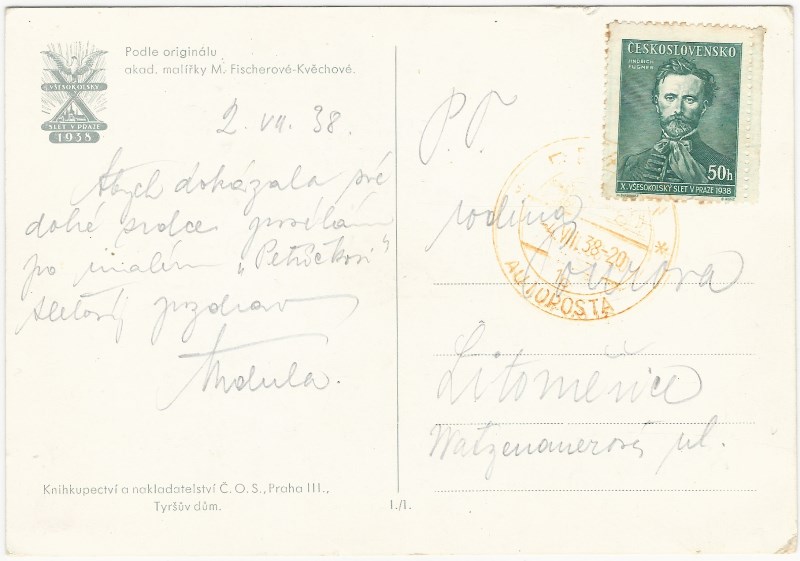 Podle originálu
akad. malířky M. Fischerové-Kvěchové.
VŠESOKOLSKÝ
SLET V PRAZE
1938
2. VII. 38.
Abych dokázala své
dobré srdce posílám
po malém „Petříčkovi"
sletový pozdrav
Andula.
Knihkupectví a nakladatelství Č. O. S., Praha III.,
Tyršův dům.
1./1.
ČESKOSLOVENSKO
JINDŘICH
FÜGNER
50h
X. VŠESOKOLSKÝ SLET V PRAZE 1938
-4.VII.38-20
AUTOPOŠTA
P. T.
rodina
Litoměřice
Watzenauerova ul.